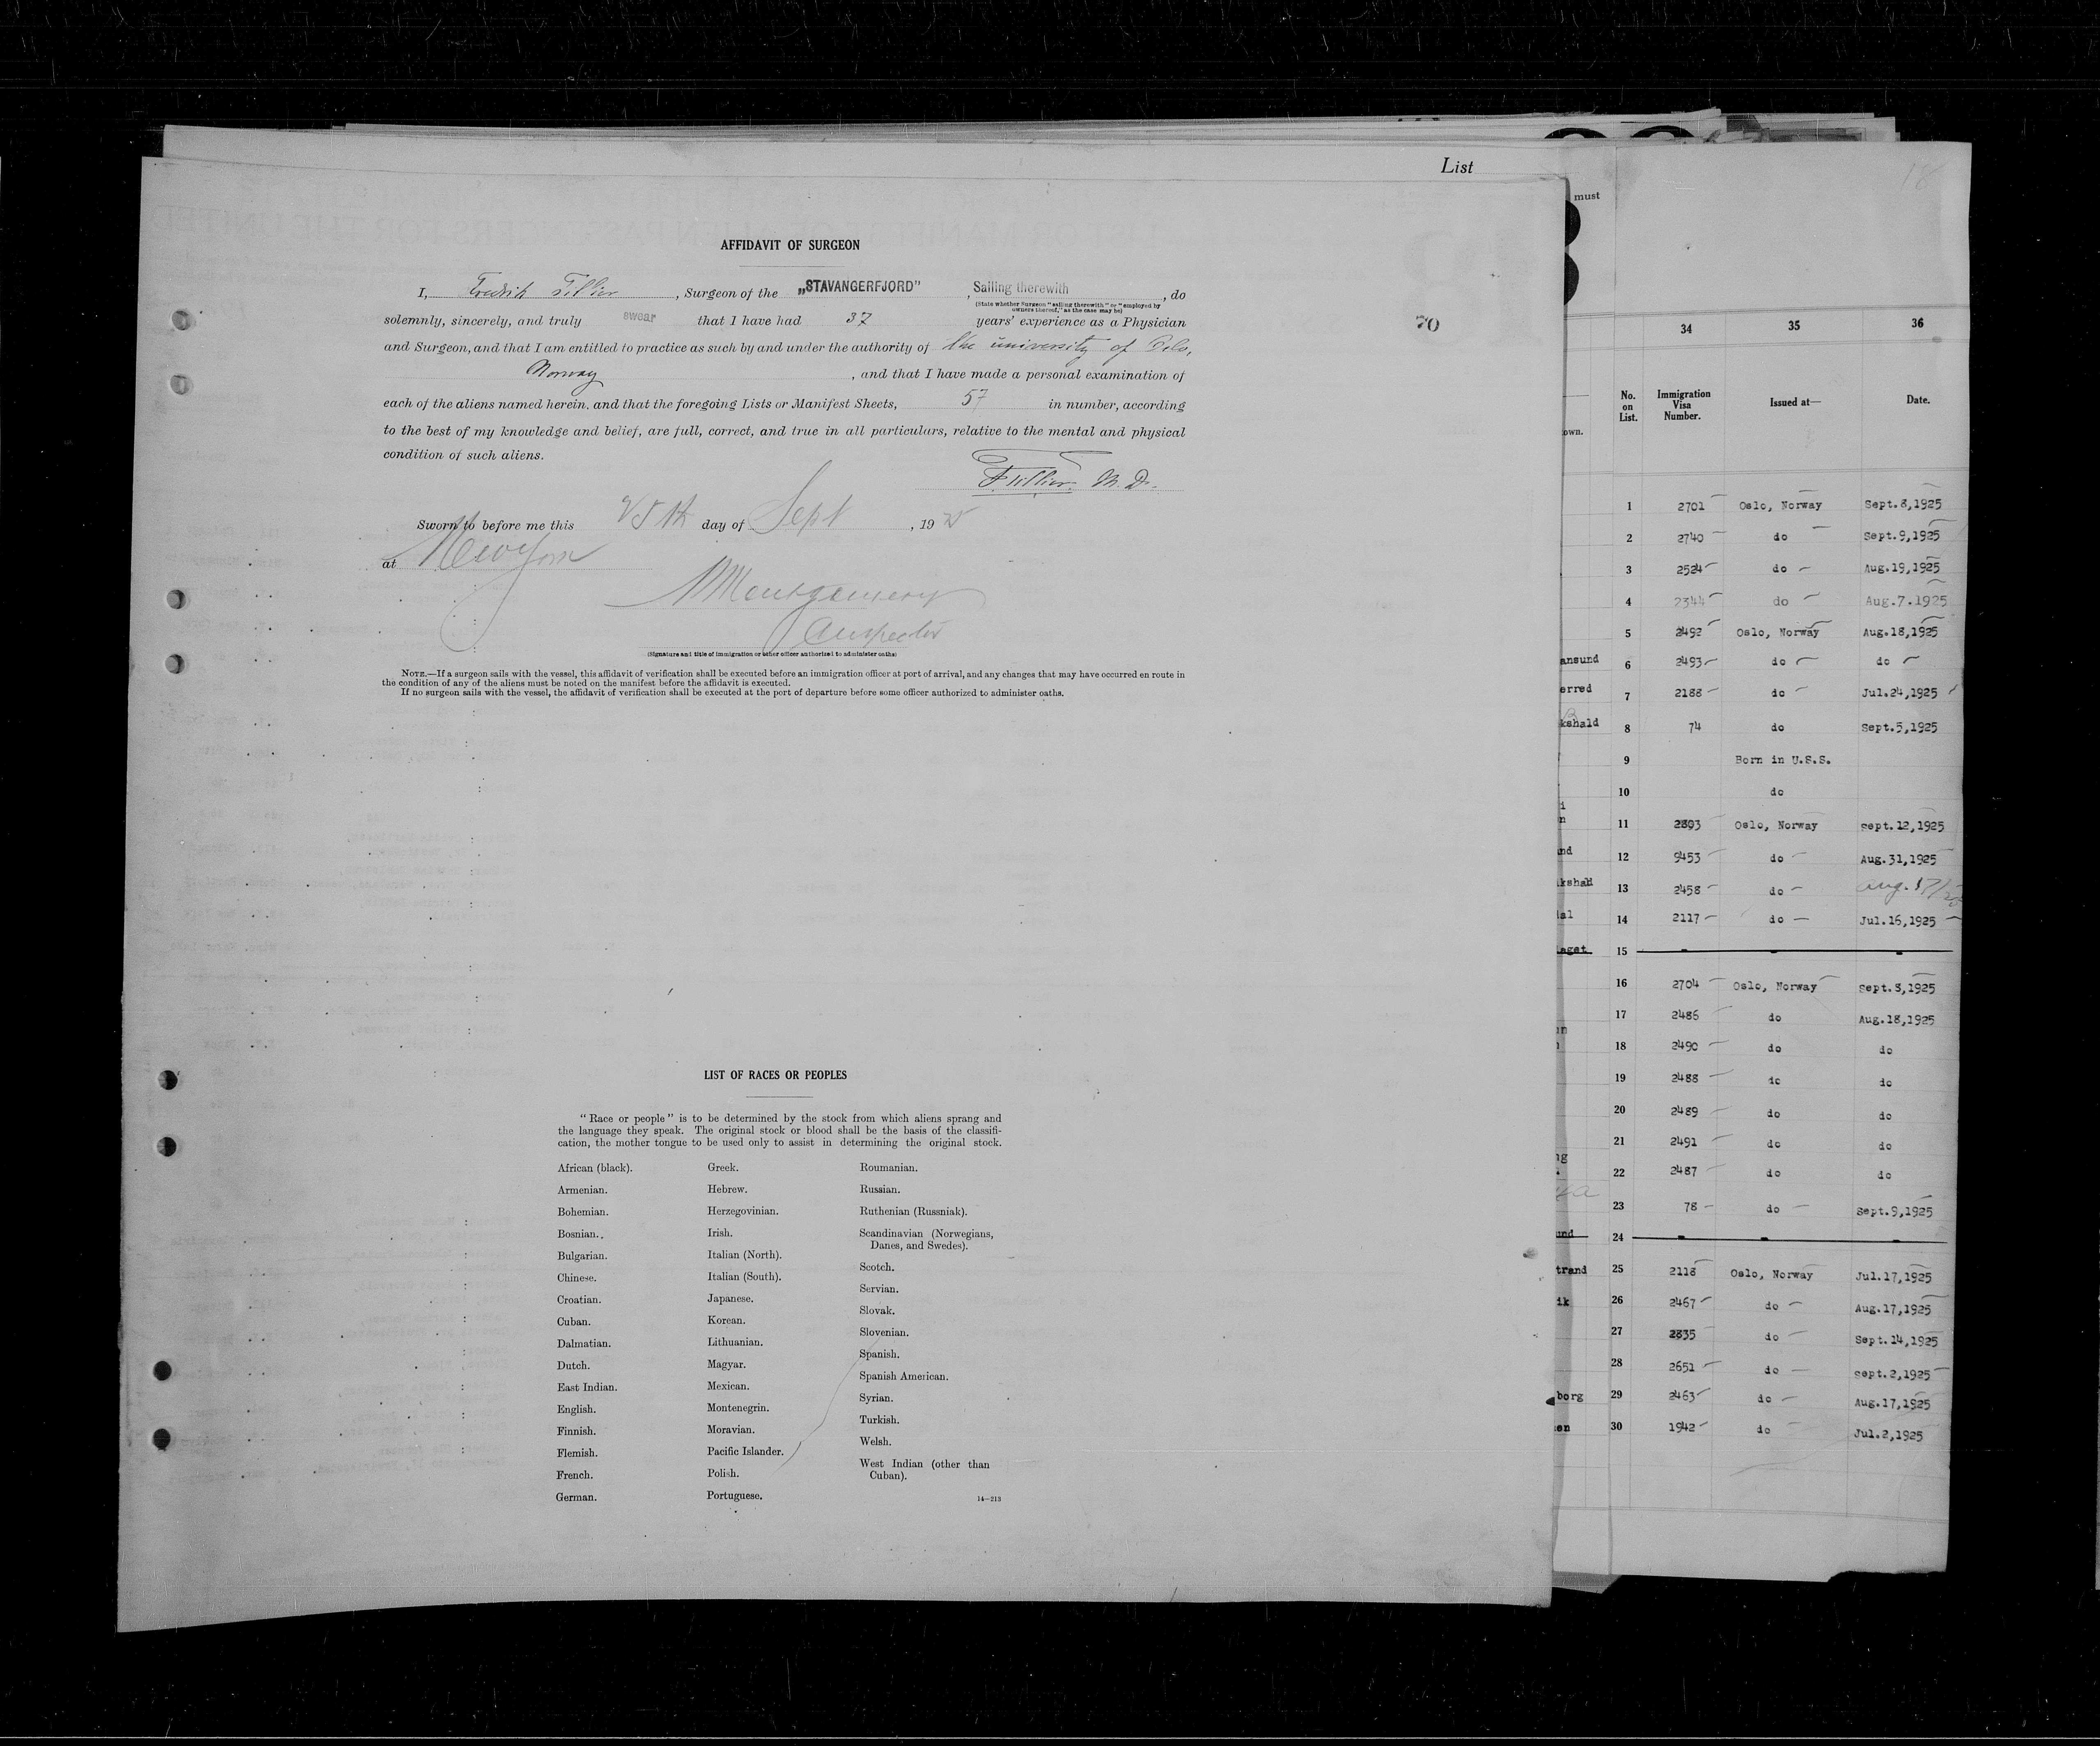 List
AFFIDAVIT OF SURGEON
I, Fredrik Tillier, Surgeon of the „STAVANGERFJORD", Sailing therewith, do
(State whether Surgeon "sailing therewith" or "employed by
owners thereof," as the case may be)
solemnly, sincerely, and truly swear that I have had 37 years' experience as a Physician
and Surgeon, and that I am entitled to practice as such by and under the authority of the university of Oslo,
Norway, and that I have made a personal examination of
each of the aliens named herein, and that the foregoing Lists or Manifest Sheets, 57 in number, according
to the best of my knowledge and belief, are full, correct, and true in all particulars, relative to the mental and physical
condition of such aliens.
F. Tillier. M.D.
Sworn to before me this 25th day of Sept, 1925
at New York
Montgomery
Inspector
(Signature and title of immigration or other officer authorized to administer oaths)
NOTE.—If a surgeon sails with the vessel, this affidavit of verification shall be executed before an immigration officer at port of arrival, and any changes that may have occurred en route in
the condition of any of the aliens must be noted on the manifest before the affidavit is executed.
If no surgeon sails with the vessel, the affidavit of verification shall be executed at the port of departure before some officer authorized to administer oaths.
70
LIST OF RACES OR PEOPLES
"Race or people" is to be determined by the stock from which aliens sprang and
the language they speak. The original stock or blood shall be the basis of the classifi-
cation, the mother tongue to be used only to assist in determining the original stock.
African (black).
Armenian.
Bohemian.
Bosnian.
Bulgarian.
Chinese.
Croatian.
Cuban.
Dalmatian.
Dutch.
East Indian.
English.
Finnish.
Flemish.
French.
German.
Greek.
Hebrew.
Herzegovinian.
Irish.
Italian (North).
Italian (South).
Japanese.
Korean.
Lithuanian.
Magyar.
Mexican.
Montenegrin.
Moravian.
Pacific Islander.
Polish.
Portuguese.
Roumanian.
Russian.
Ruthenian (Russniak).
Scandinavian (Norwegians,
Danes, and Swedes).
Scotch.
Servian.
Slovak.
Slovenian.
Spanish.
Spanish American.
Syrian.
Turkish.
Welsh.
West Indian (other than
Cuban).
14—213
must
18
34 35 36
No. on List. Immigration Visa Number. Issued at— Date.
1 2701 Oslo, Norway Sept.8,1925
2 2740 do Sept.9,1925
3 2524 do Aug.19,1925
4 2344 do Aug.7.1925
5 2492 Oslo, Norway Aug.18,1925
ansund 6 2493 do do
erred 7 2188 do Jul.24,1925
kshald 8 74 do Sept.5,1925
9 Born in U.S.S.
10 do
11 2803 Oslo, Norway sept.12,1925
nd 12 9453 do Aug.31,1925
kshald 13 2458 do Aug. 17/25
al 14 2117 do Jul.16,1925
aget 15 - - -
16 2704 Oslo, Norway Sept.8,1925
17 2486 do Aug.18,1925
18 2490 do do
19 2488 do do
20 2489 do do
21 2491 do do
22 2487 do do
23 78 do Sept.9,1925
und 24 - - -
trand 25 2118 Oslo, Norway Jul.17,1925
ik 26 2467 do Aug.17,1925
27 2835 do Sept.14,1925
28 2651 do sept.2,1925
borg 29 2463 do Aug.17,1925
en 30 1942 do Jul.2,1925